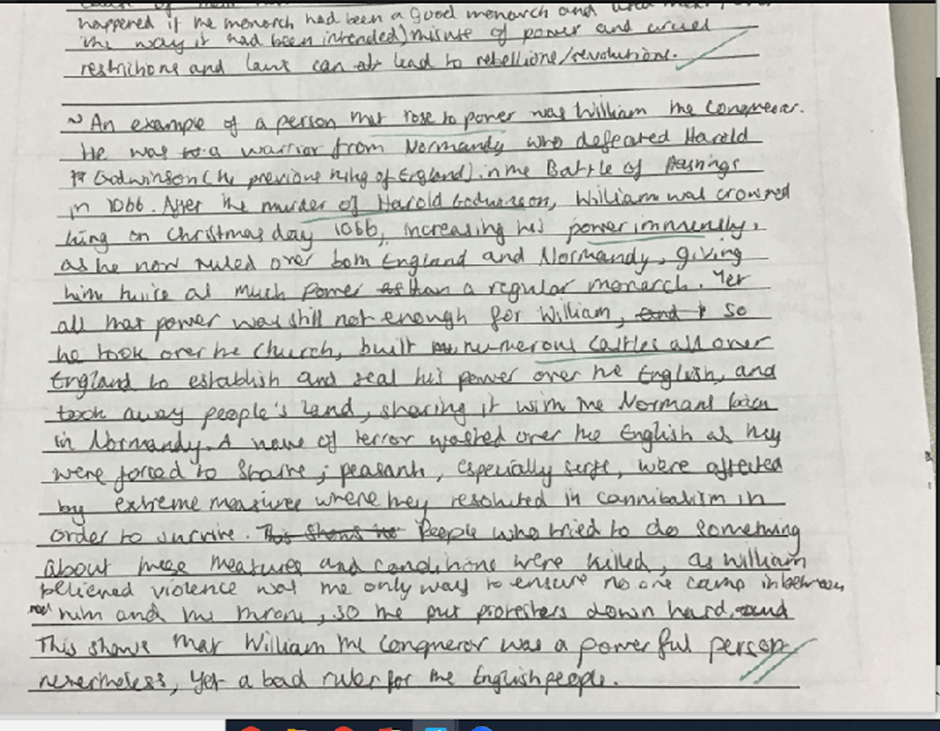 happened if the monarch had been a good monarch and
the way it had been intended) misuse of power and cruel
restrictions and laws can lead to rebellions/revolutions.
~ An example of a person that rose to power was William the Conqueror.
He was a warrior from Normandy who defeated Harold
Godwinson (the previous king of England) in the Battle of Hastings
in 1066. After the murder of Harold Godwinson, William was crowned
king on Christmas day 1066, increasing his power immensly,
as he now ruled over both England and Normandy, giving
him twice as much power as than a regular monarch. Yet
all that power was still not enough for William, and so
he took over the Church, built numerous castles all over
England to establish and seal his power over the English, and
took away people's land, sharing it with the Normans
in Normandy. A wave of terror washed over the English as they
were forced to starve; peasants, especially serfs, were affected
by extreme measures where they resoluted in cannibalism in
order to survive. This shows the People who tried to do something
about these measures and conditions were killed, as William
believed violence was the only way to ensure no one came inbetween
him and his throne, so he put protesters down hard. and
This shows that William the Conqueror was a powerful person
nevertheless, yet a bad ruler for the English people.